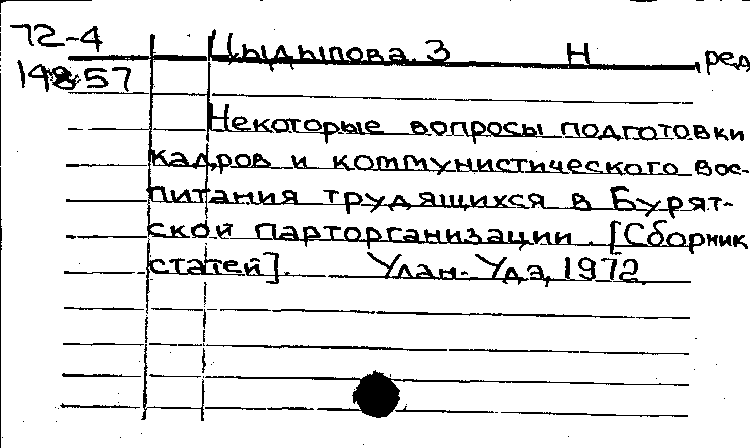 72-4
Цыдыпова. З Н ред
14857
Некоторые вопросы подготовки
кадров и коммунистического вос-
питания трудящихся в Бурят-
ской парторганизации. [Сборник
статей]. Улан-Удэ, 1972.